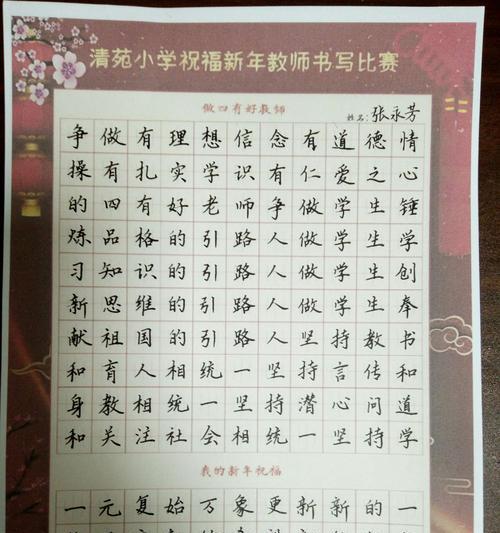 清苑小学祝福新年教师书写比赛
做四有好教师
姓名:张永芳
争做有理想信念有道德情
操有扎实学识有仁爱之心
的四有好老师争做学生锤
炼品格的引路人做学生学
习知识的引路人做学生创
新思维的引路人做学生奉
献祖国的引路人坚持教书
和育人相统一坚持言传和
身教相统一坚持潜心问道
和关注社会相统一坚持学
我的新年祝福
一元复始万象更新新的一